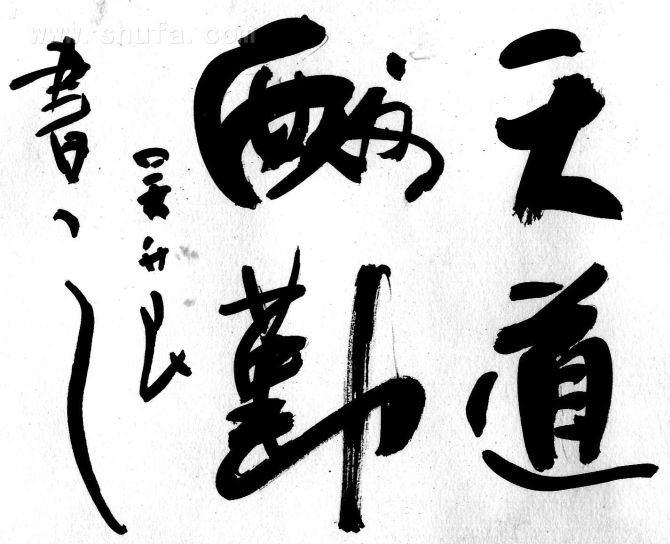 天道
酬勤
書之
www.shufa.com